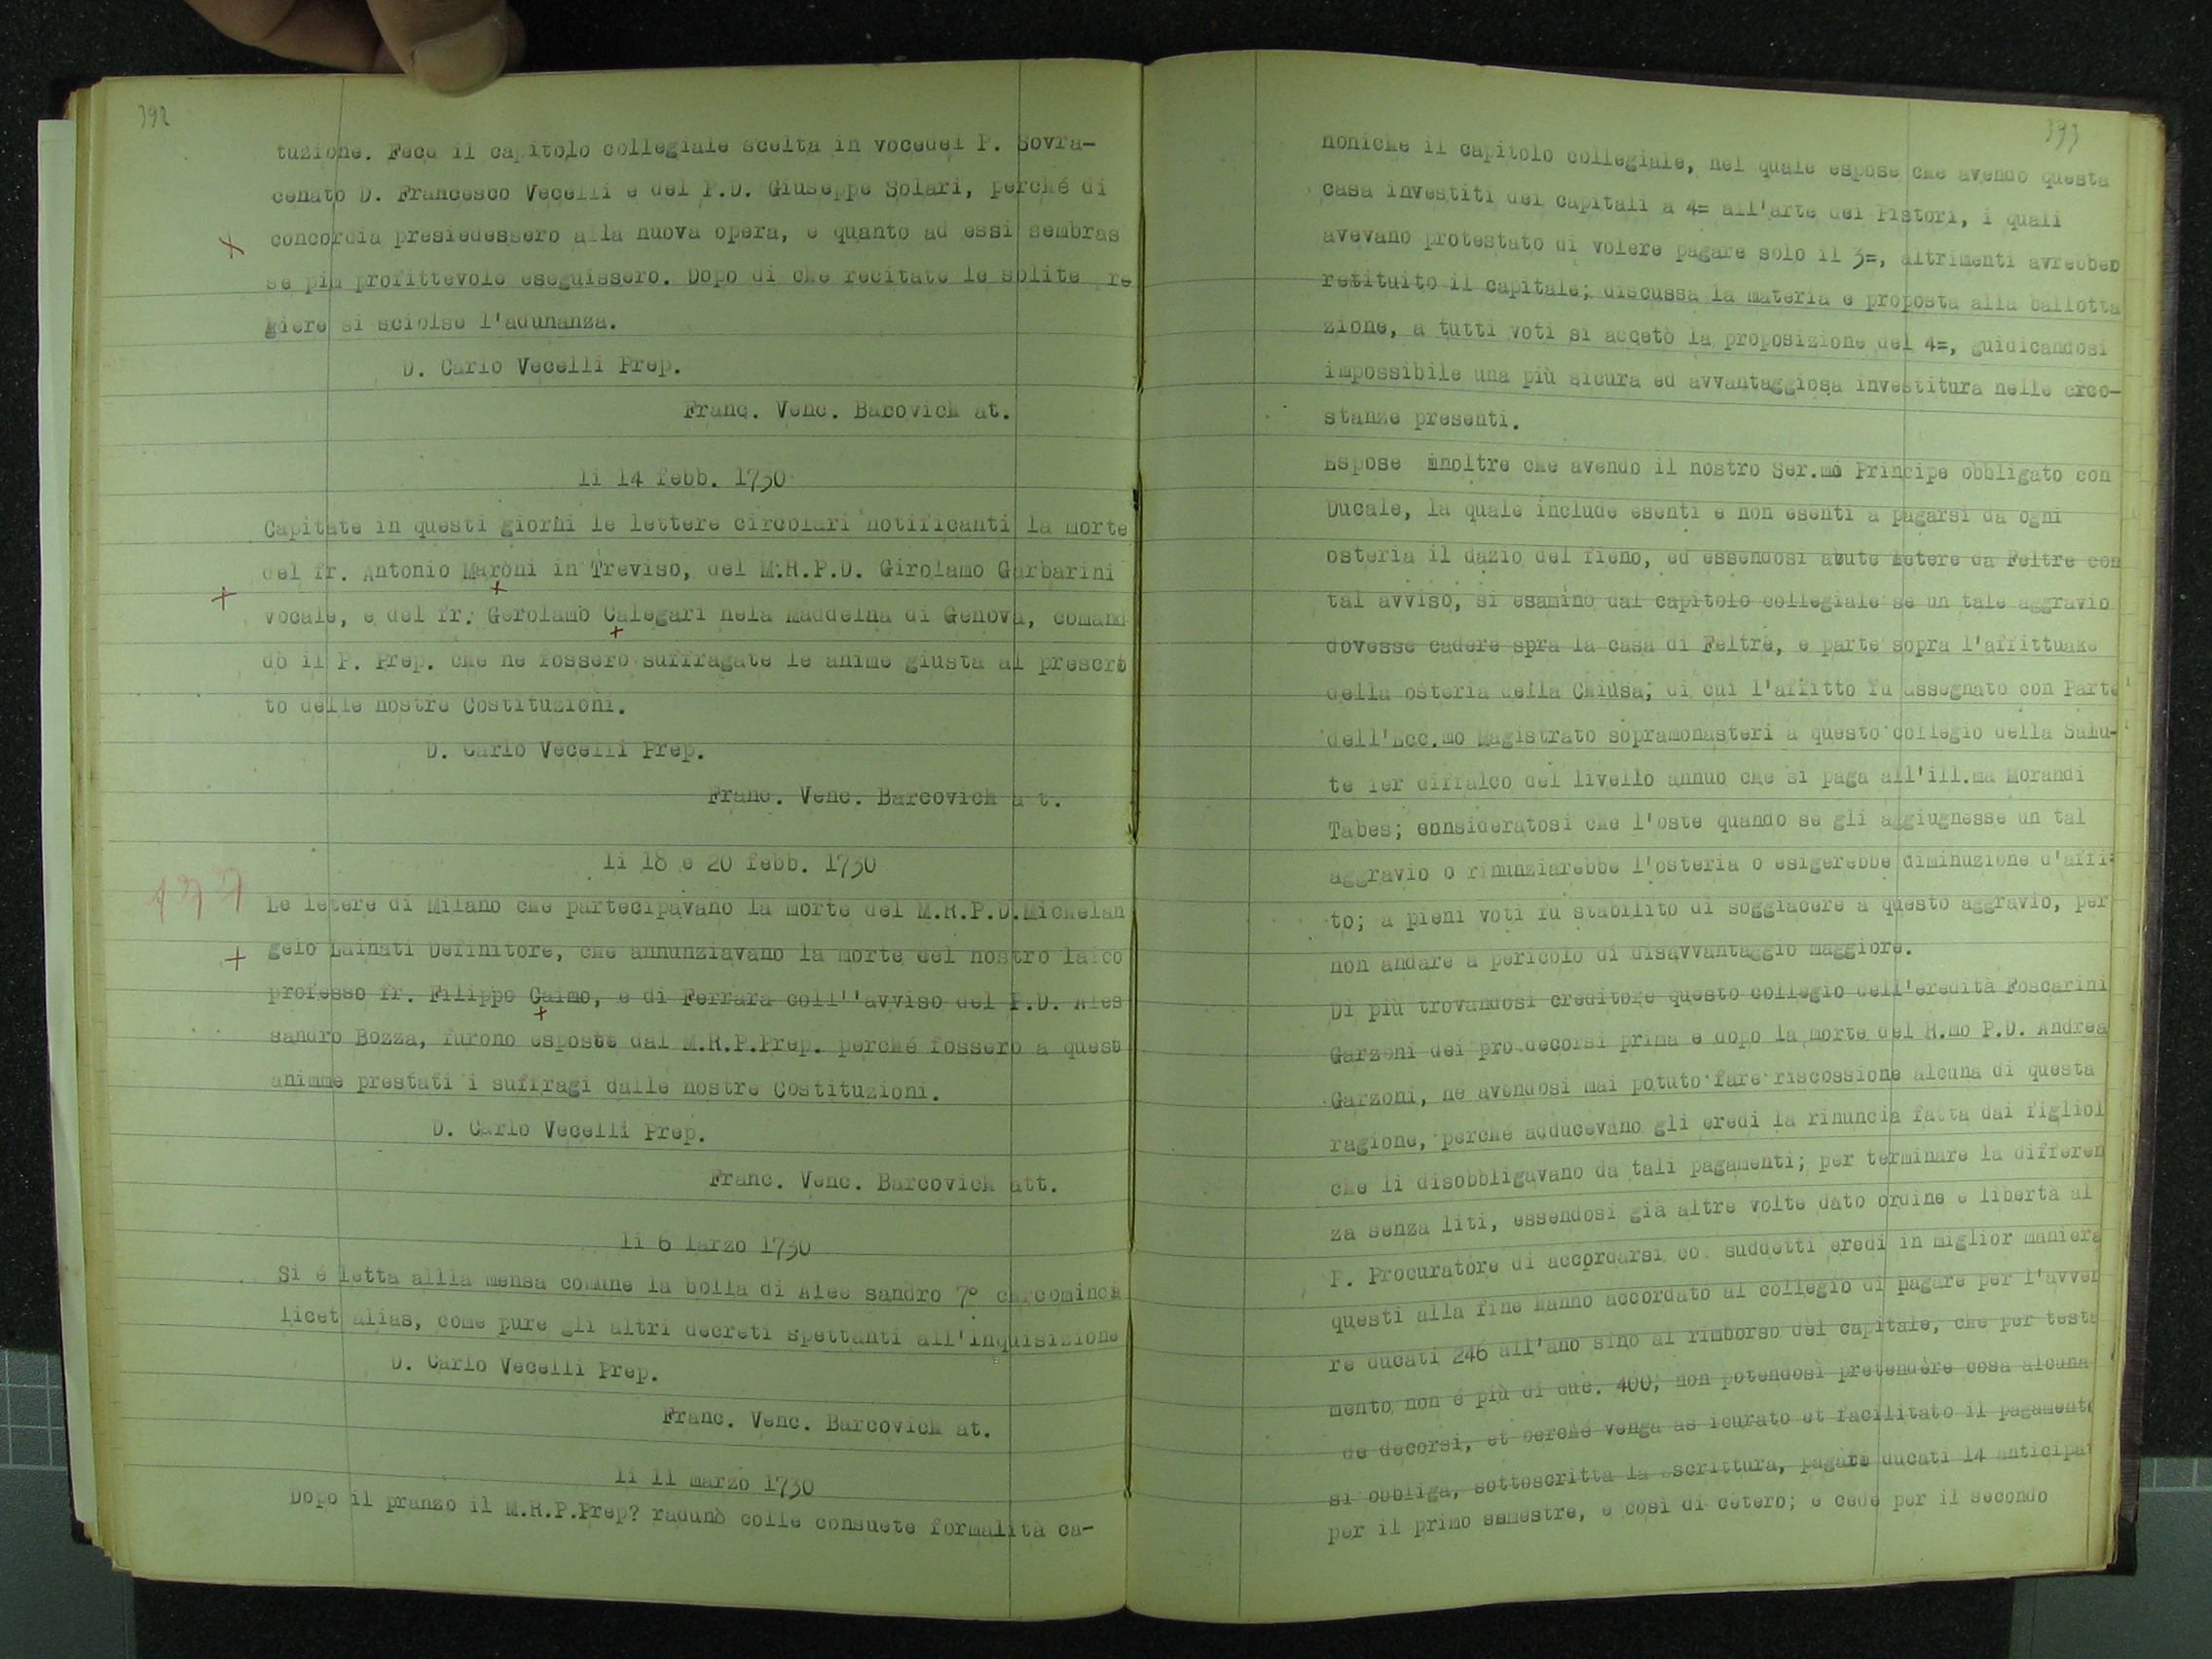 392
tuzione. Fece il capitolo collegiale scelta in vocedel P. Sovra-
cenato D. Francesco Vecelli e del P.D. Giuseppe Solari, perché di
concordia presiedessero alla nuova opera, e quanto ad essi sembras
se piu profittevole eseguissero. Dopo di che recitate le solite re
ghiere si sciolse l'adunanza.
D. Carlo Vecelli Prep.
Franc. Venc. Barcovich at.
li 14 febb. 1730
Capitate in questi giorni le lettere circolari notificanti la morte
del fr. Antonio Maroni in Treviso, del M.R.P.D. Girolamo Garbarini
vocale, e del fr. Gerolamo Calegari nela Maddelna di Genova, comand
dò il P. Prep. che ne fossero suffragate le anime giusta al prescrt
to delle nostre Costituzioni.
D. Carlo Vecelli Prep.
Franc. Venc. Barcovich a t.
li 18 e 20 febb. 1730
137
Le letere di Milano che partecipavano la morte del M.R.P.D.Michelan
gelo Lainati Definitore, che annunziavano la morte del nostro laico
professo fr. Filippo Caimo, e di Ferrara coll''avviso del P.D. Ales
sandro Bozza, furono esposte dal M.R.P.Prep. perché fossero a quest
animme prestati i suffragi dalle nostre Costituzioni.
D. Carlo Vecelli Prep.
Franc. Venc. Barcovich att.
li 6 larzo 1730
Si é letta allla mensa comune la bolla di Ales sandro 7°
licet alias, come pure gli altri decreti spettanti all'Inquisizione
D. Carlo Vecelli Prep.
Franc. Venc. Barcovich at.
li 11 marzo 1730
Dopo il pranzo il M.R.P.Prep? radunò colle consuete formalità ca-
393
noniche il capitolo collegiale, nel quale espose che avendo questa
casa investiti dei capitali a 4= all'arte dei Pistori, i quali
avevano protestato di volere pagare solo il 3=, altrimenti avrebbeo
retituito il capitale; discussa la materia e proposta alla ballotta
zione, a tutti voti si accetò la proposizione del 4=, guidicandosi
impossibile una più sicura ed avvantaggiosa investitura nelle crco-
stanze presenti.
Espose inoltre che avendo il nostro Ser.mo Principe obbligato con
Ducale, la quale include esenti e non esenti a pagarsi da ogni
osteria il dazio del fieno, ed essendosi abute letere da Feltre con
tal avviso, si esamino dal capitolo collegiale se un tale aggravio
dovesse cadere spra la casa di Feltre, e parte sopra l'affittuake
della osteria della Chiusa, di cui l'affitto fu assegnato con Parte
dell'Ecc.mo Magistrato sopramonasteri a questo collegio della Salu-
te Ier diffalco del livello annuo che si paga all'ill.ma Morandi
Tabes; consideratosi che l'oste quando se gli aggiugnesse un tal
aggravio o rinunziarebbe l'osteria o esigerebbe diminuzione d'affi-
to; a pieni voti fu stabilito di soggiacere a questo aggravio, per
non andare a pericolo di disavvantaggio maggiore.
Di più trovandosi creditore questo collegio dell'eredità Foscarini
Garzoni dei pro decorsi prima e dopo la morte del R.mo P.D. Andrea
Garzoni, né avendosi mai potuto fare riscossione alcuna di questa
ragione, perché adducevano gli eredi la rinuncia fatta dai figliol
che li disobbligavano da tali pagamenti; per terminare la differen
za senza liti, essendosi già altre volte dato ordine e libertà al
P. Procuratore di accordarsi co. suddetti eredi in miglior maniera
questi alla fine hanno accordato al collegio di pagare per l'avven
re ducati 246 all'ano sino al rimborso del capitale, che per testa
mento non é più di duc. 400, non potendosi pretendere cosa alcuna
de decorsi, et perché venga as icurato et facilitato il pagamento
si obbliga, sottoscritta la scrittura, pagare ducati 14 anticipat
per il primo semestre, e così di cetero; e cede per il secondo